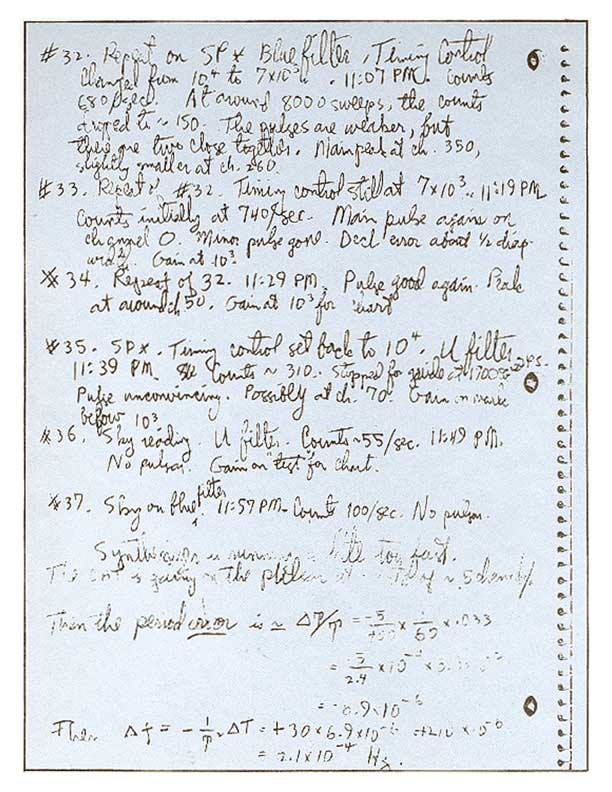 #32. Repeat on SP* Blue filter, Timing Control
changed from 10⁴ to 7x10³. 11:07 PM. Counts
680/sec. At around 8000 sweeps, the counts
dropped to ~ 150. The pulses are weaker, but
there are two close together. Main peak at ch. 350,
slightly smaller at ch. 260.
#33. Repeat of #32. Timing control still at 7x10³. 11:19 PM
Counts initially at 740/sec. Main pulse again on
channel 0. Minor pulse gone. Decl error about ½ diap-
Gain at 10³
#34. Repeat of 32. 11:29 PM. Pulse good again. Peak
at around ch 50. Gain at 10³ for
#35. SP*. Timing control set back to 10⁴. U filter
11:39 PM Counts ~ 310. Stopped for guide at 1700
Pulse unconvincing. Possibly at ch. 70. Gain on
below 10³
#36. Sky reading. U filter. Counts ~55/sec. 11:49 PM.
No pulsar. Gain on "test" for chart.
#37. Sky on blue filter. 11:57 PM. Counts 100/sec. No pulsar.
is running a little too fast.
The is on the pulsar at of ~ 5 channels/
Then the period error is ≈ ΔP/P = -5/400 x 1/60 x .033
= 5/2.4 x 10⁻⁴ x
= -6.9x10⁻⁶
Then Δf = - 1/P² ΔT = +30 x 6.9x10⁻⁶ = +210 x 10⁻⁶
= 2.1x10⁻⁴ Hz.